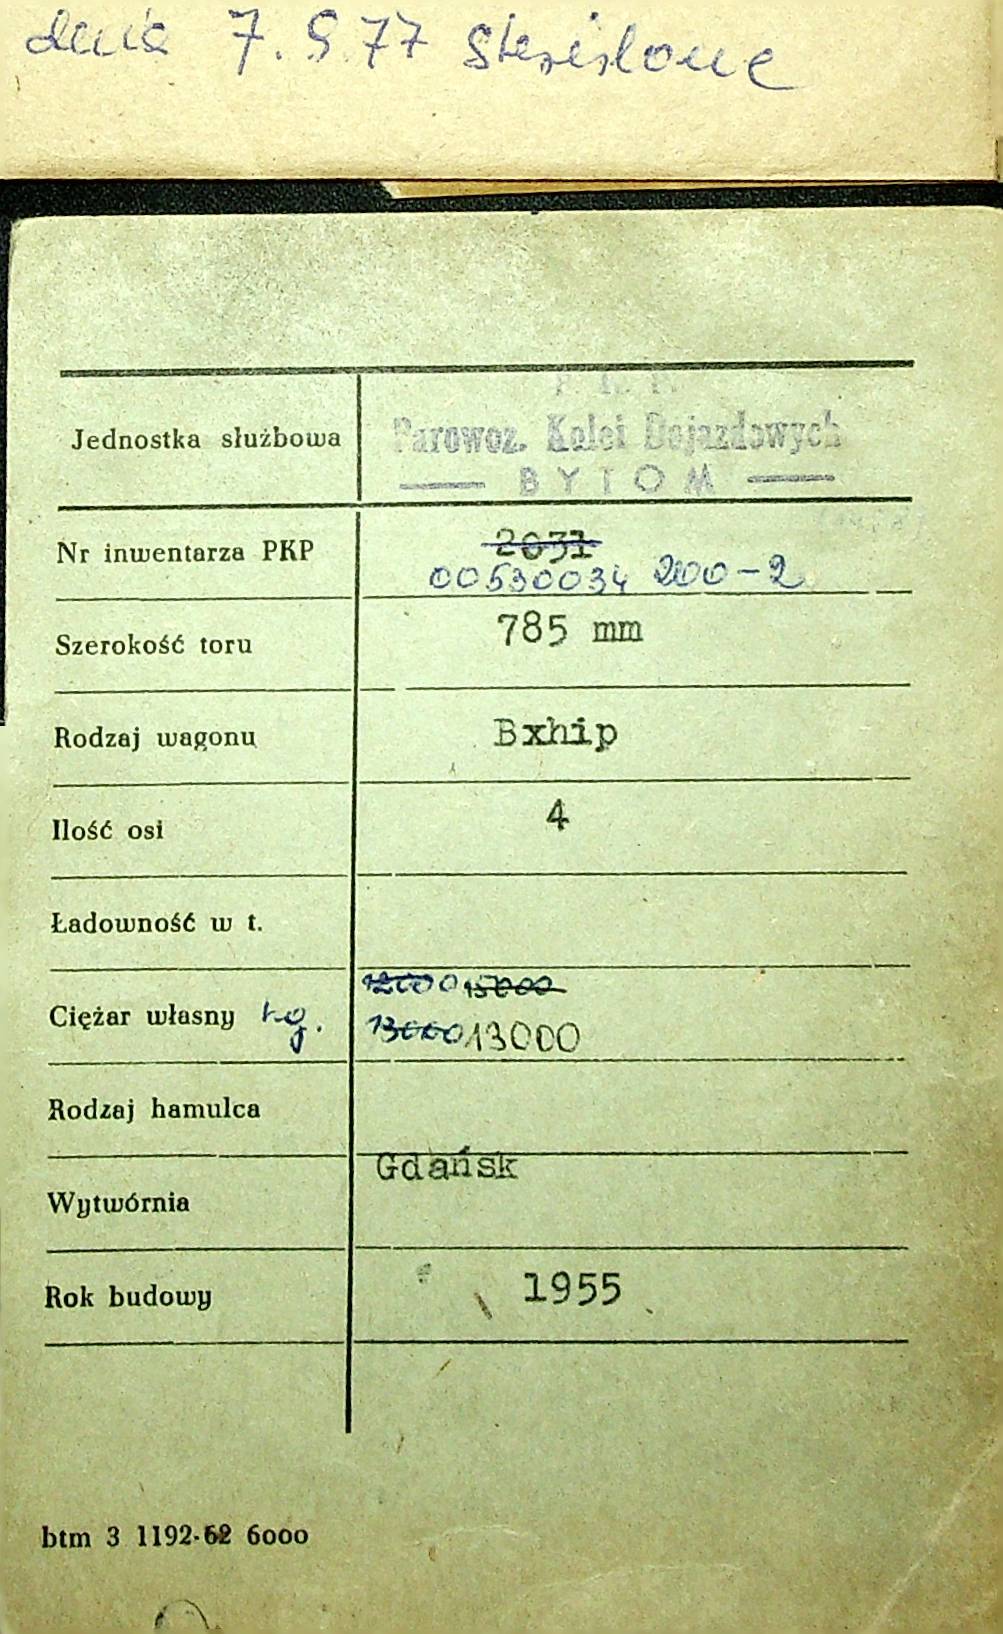 dnia 7.9.77 skreślone
P. K. P.
Jednostka służbowa Parowoz. Kolei Dojazdowych
— BYTOM —
Nr inwentarza PKP 2031
00530034 200-2
Szerokość toru 785 mm
Rodzaj wagonu Bxhip
Ilość osi 4
Ładowność w t.
12000 15000
Ciężar własny kg. 13000 13000
Rodzaj hamulca
Wytwórnia Gdańsk
Rok budowy 1955
btm 3 1192-62 6000